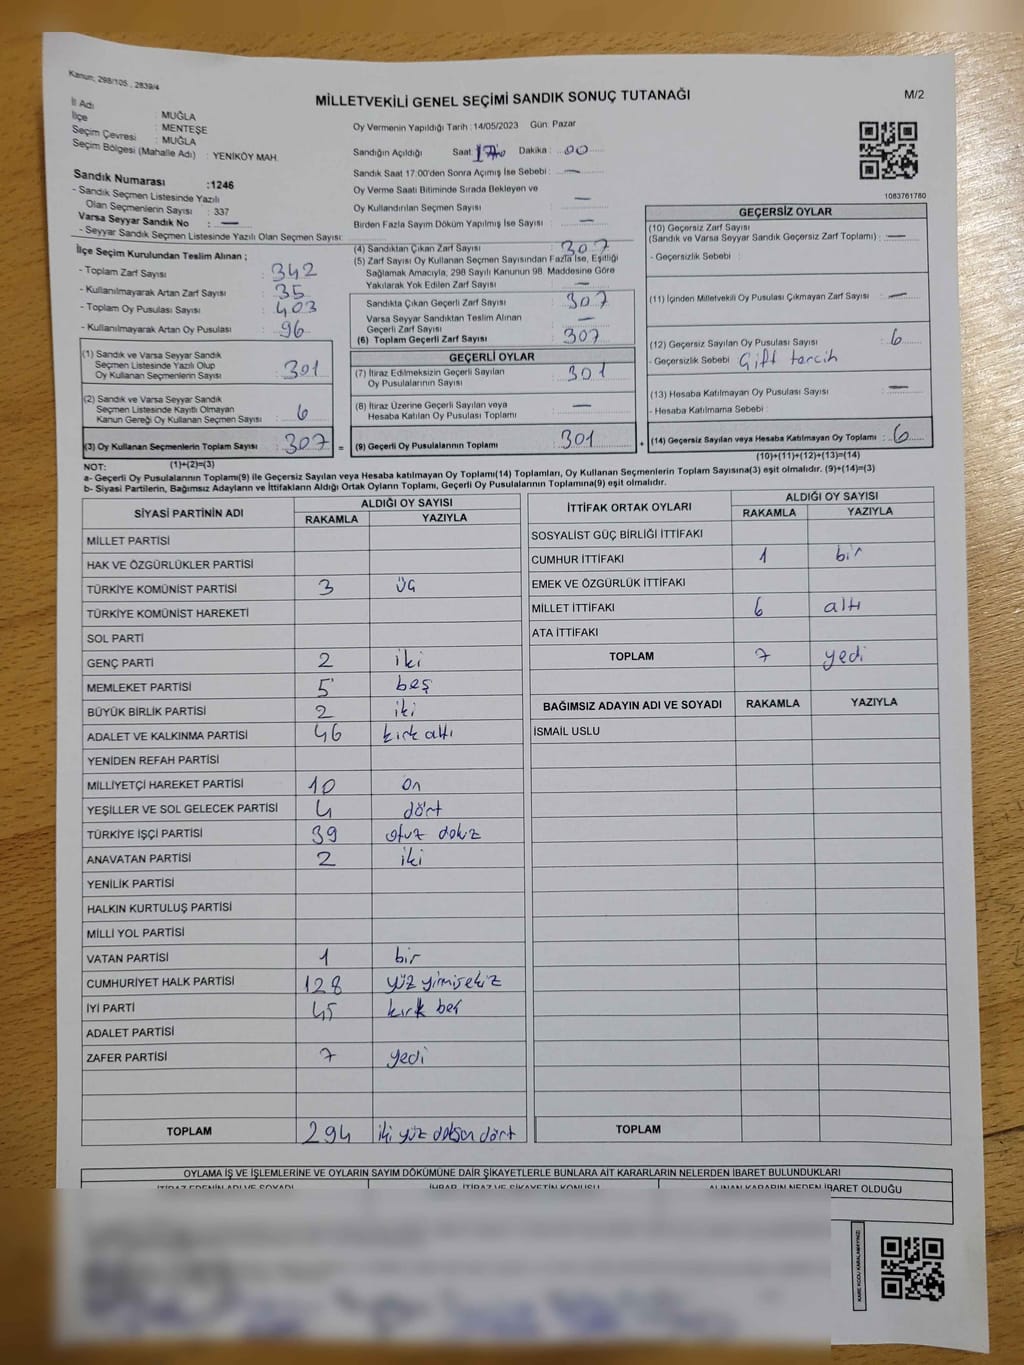 Kanun: 298/105 , 2839/4
MİLLETVEKİLİ GENEL SEÇİMİ SANDIK SONUÇ TUTANAĞI
M/2
İl Adı : MUĞLA
İlçe : MENTEŞE
Seçim Çevresi : MUĞLA
Seçim Bölgesi (Mahalle Adı) : YENİKÖY MAH.
Sandık Numarası :1246
- Sandık Seçmen Listesinde Yazılı
Olan Seçmenlerin Sayısı : 337
Varsa Seyyar Sandık No : —
- Seyyar Sandık Seçmen Listesinde Yazılı Olan Seçmen Sayısı:
İlçe Seçim Kurulundan Teslim Alınan ;
- Toplam Zarf Sayısı : 342
- Kullanılmayarak Artan Zarf Sayısı : 35
- Toplam Oy Pusulası Sayısı : 403
- Kullanılmayarak Artan Oy Pusulası : 96
(1) Sandık ve Varsa Seyyar Sandık
Seçmen Listesinde Yazılı Olup
Oy Kullanan Seçmenlerin Sayısı : 301
(2) Sandık ve Varsa Seyyar Sandık
Seçmen Listesinde Kayıtlı Olmayan
Kanun Gereği Oy Kullanan Seçmen Sayısı : 6
(3) Oy Kullanan Seçmenlerin Toplam Sayısı : 307 =
(1)+(2)=(3)
Oy Vermenin Yapıldığı Tarih : 14/05/2023 Gün: Pazar
Sandığın Açıldığı Saat : 17 Dakika : 00
Sandık Saat 17:00'den Sonra Açımış İse Sebebi : —
Oy Verme Saati Bitiminde Sırada Bekleyen ve
Oy Kullandırılan Seçmen Sayısı : —
Birden Fazla Sayım Döküm Yapılmış İse Sayısı : —
(4) Sandıktan Çıkan Zarf Sayısı : 307
(5) Zarf Sayısı Oy Kullanan Seçmen Sayısından Fazla İse, Eşitliği
Sağlamak Amacıyla, 298 Sayılı Kanunun 98. Maddesine Göre
Yakılarak Yok Edilen Zarf Sayısı : —
Sandıkta Çıkan Geçerli Zarf Sayısı : 307
Varsa Seyyar Sandıktan Teslim Alınan
Geçerli Zarf Sayısı : —
(6) Toplam Geçerli Zarf Sayısı : 307
GEÇERLİ OYLAR
(7) İtiraz Edilmeksizin Geçerli Sayılan
Oy Pusulalarının Sayısı : 301
(8) İtiraz Üzerine Geçerli Sayılan veya
Hesaba Katılan Oy Pusulası Toplamı : —
(9) Geçerli Oy Pusulalarının Toplamı : 301 +
1083761780
GEÇERSİZ OYLAR
(10) Geçersiz Zarf Sayısı
(Sandık ve Varsa Seyyar Sandık Geçersiz Zarf Toplamı) : —
- Geçersizlik Sebebi :
(11) İçinden Milletvekili Oy Pusulası Çıkmayan Zarf Sayısı : —
(12) Geçersiz Sayılan Oy Pusulası Sayısı : 6
- Geçersizlik Sebebi : Çift tercih
(13) Hesaba Katılmayan Oy Pusulası Sayısı : —
- Hesaba Katılmama Sebebi :
(14) Geçersiz Sayılan veya Hesaba Katılmayan Oy Toplamı : 6
(10)+(11)+(12)+(13)=(14)
NOT:
a- Geçerli Oy Pusulalarının Toplamı(9) ile Geçersiz Sayılan veya Hesaba katılmayan Oy Toplamı(14) Toplamları, Oy Kullanan Seçmenlerin Toplam Sayısına(3) eşit olmalıdır. (9)+(14)=(3)
b- Siyasi Partilerin, Bağımsız Adayların ve İttifakların Aldığı Ortak Oyların Toplamı, Geçerli Oy Pusulalarının Toplamına(9) eşit olmalıdır.
SİYASİ PARTİNİN ADI ALDIĞI OY SAYISI
RAKAMLA YAZIYLA
MİLLET PARTİSİ
HAK VE ÖZGÜRLÜKLER PARTİSİ
TÜRKİYE KOMÜNİST PARTİSİ 3 üç
TÜRKİYE KOMÜNİST HAREKETİ
SOL PARTİ
GENÇ PARTİ 2 iki
MEMLEKET PARTİSİ 5 beş
BÜYÜK BİRLİK PARTİSİ 2 iki
ADALET VE KALKINMA PARTİSİ 46 kırk altı
YENİDEN REFAH PARTİSİ
MİLLİYETÇİ HAREKET PARTİSİ 10 On
YEŞİLLER VE SOL GELECEK PARTİSİ 4 dört
TÜRKİYE İŞÇİ PARTİSİ 39 otuz dokuz
ANAVATAN PARTİSİ 2 iki
YENİLİK PARTİSİ
HALKIN KURTULUŞ PARTİSİ
MİLLİ YOL PARTİSİ
VATAN PARTİSİ 1 bir
CUMHURİYET HALK PARTİSİ 128 yüz yirmisekiz
İYİ PARTİ 45 kırk beş
ADALET PARTİSİ
ZAFER PARTİSİ 7 yedi
TOPLAM 294 iki yüz doksan dört
İTTİFAK ORTAK OYLARI ALDIĞI OY SAYISI
RAKAMLA YAZIYLA
SOSYALİST GÜÇ BİRLİĞİ İTTİFAKI
CUMHUR İTTİFAKI 1 bir
EMEK VE ÖZGÜRLÜK İTTİFAKI
MİLLET İTTİFAKI 6 altı
ATA İTTİFAKI
TOPLAM 7 yedi
BAĞIMSIZ ADAYIN ADI VE SOYADI RAKAMLA YAZIYLA
İSMAİL USLU
TOPLAM
OYLAMA İŞ VE İŞLEMLERİNE VE OYLARIN SAYIM DÖKÜMÜNE DAİR ŞİKAYETLERLE BUNLARA AİT KARARLARIN NELERDEN İBARET BULUNDUKLARI
İTİRAZ EDENİN ADI VE SOYADI İHBAR, İTİRAZ VE ŞİKAYETİN KONUSU ALINAN KARARIN NEDEN İBARET OLDUĞU
KARE KODU KARALAMAYINIZ!